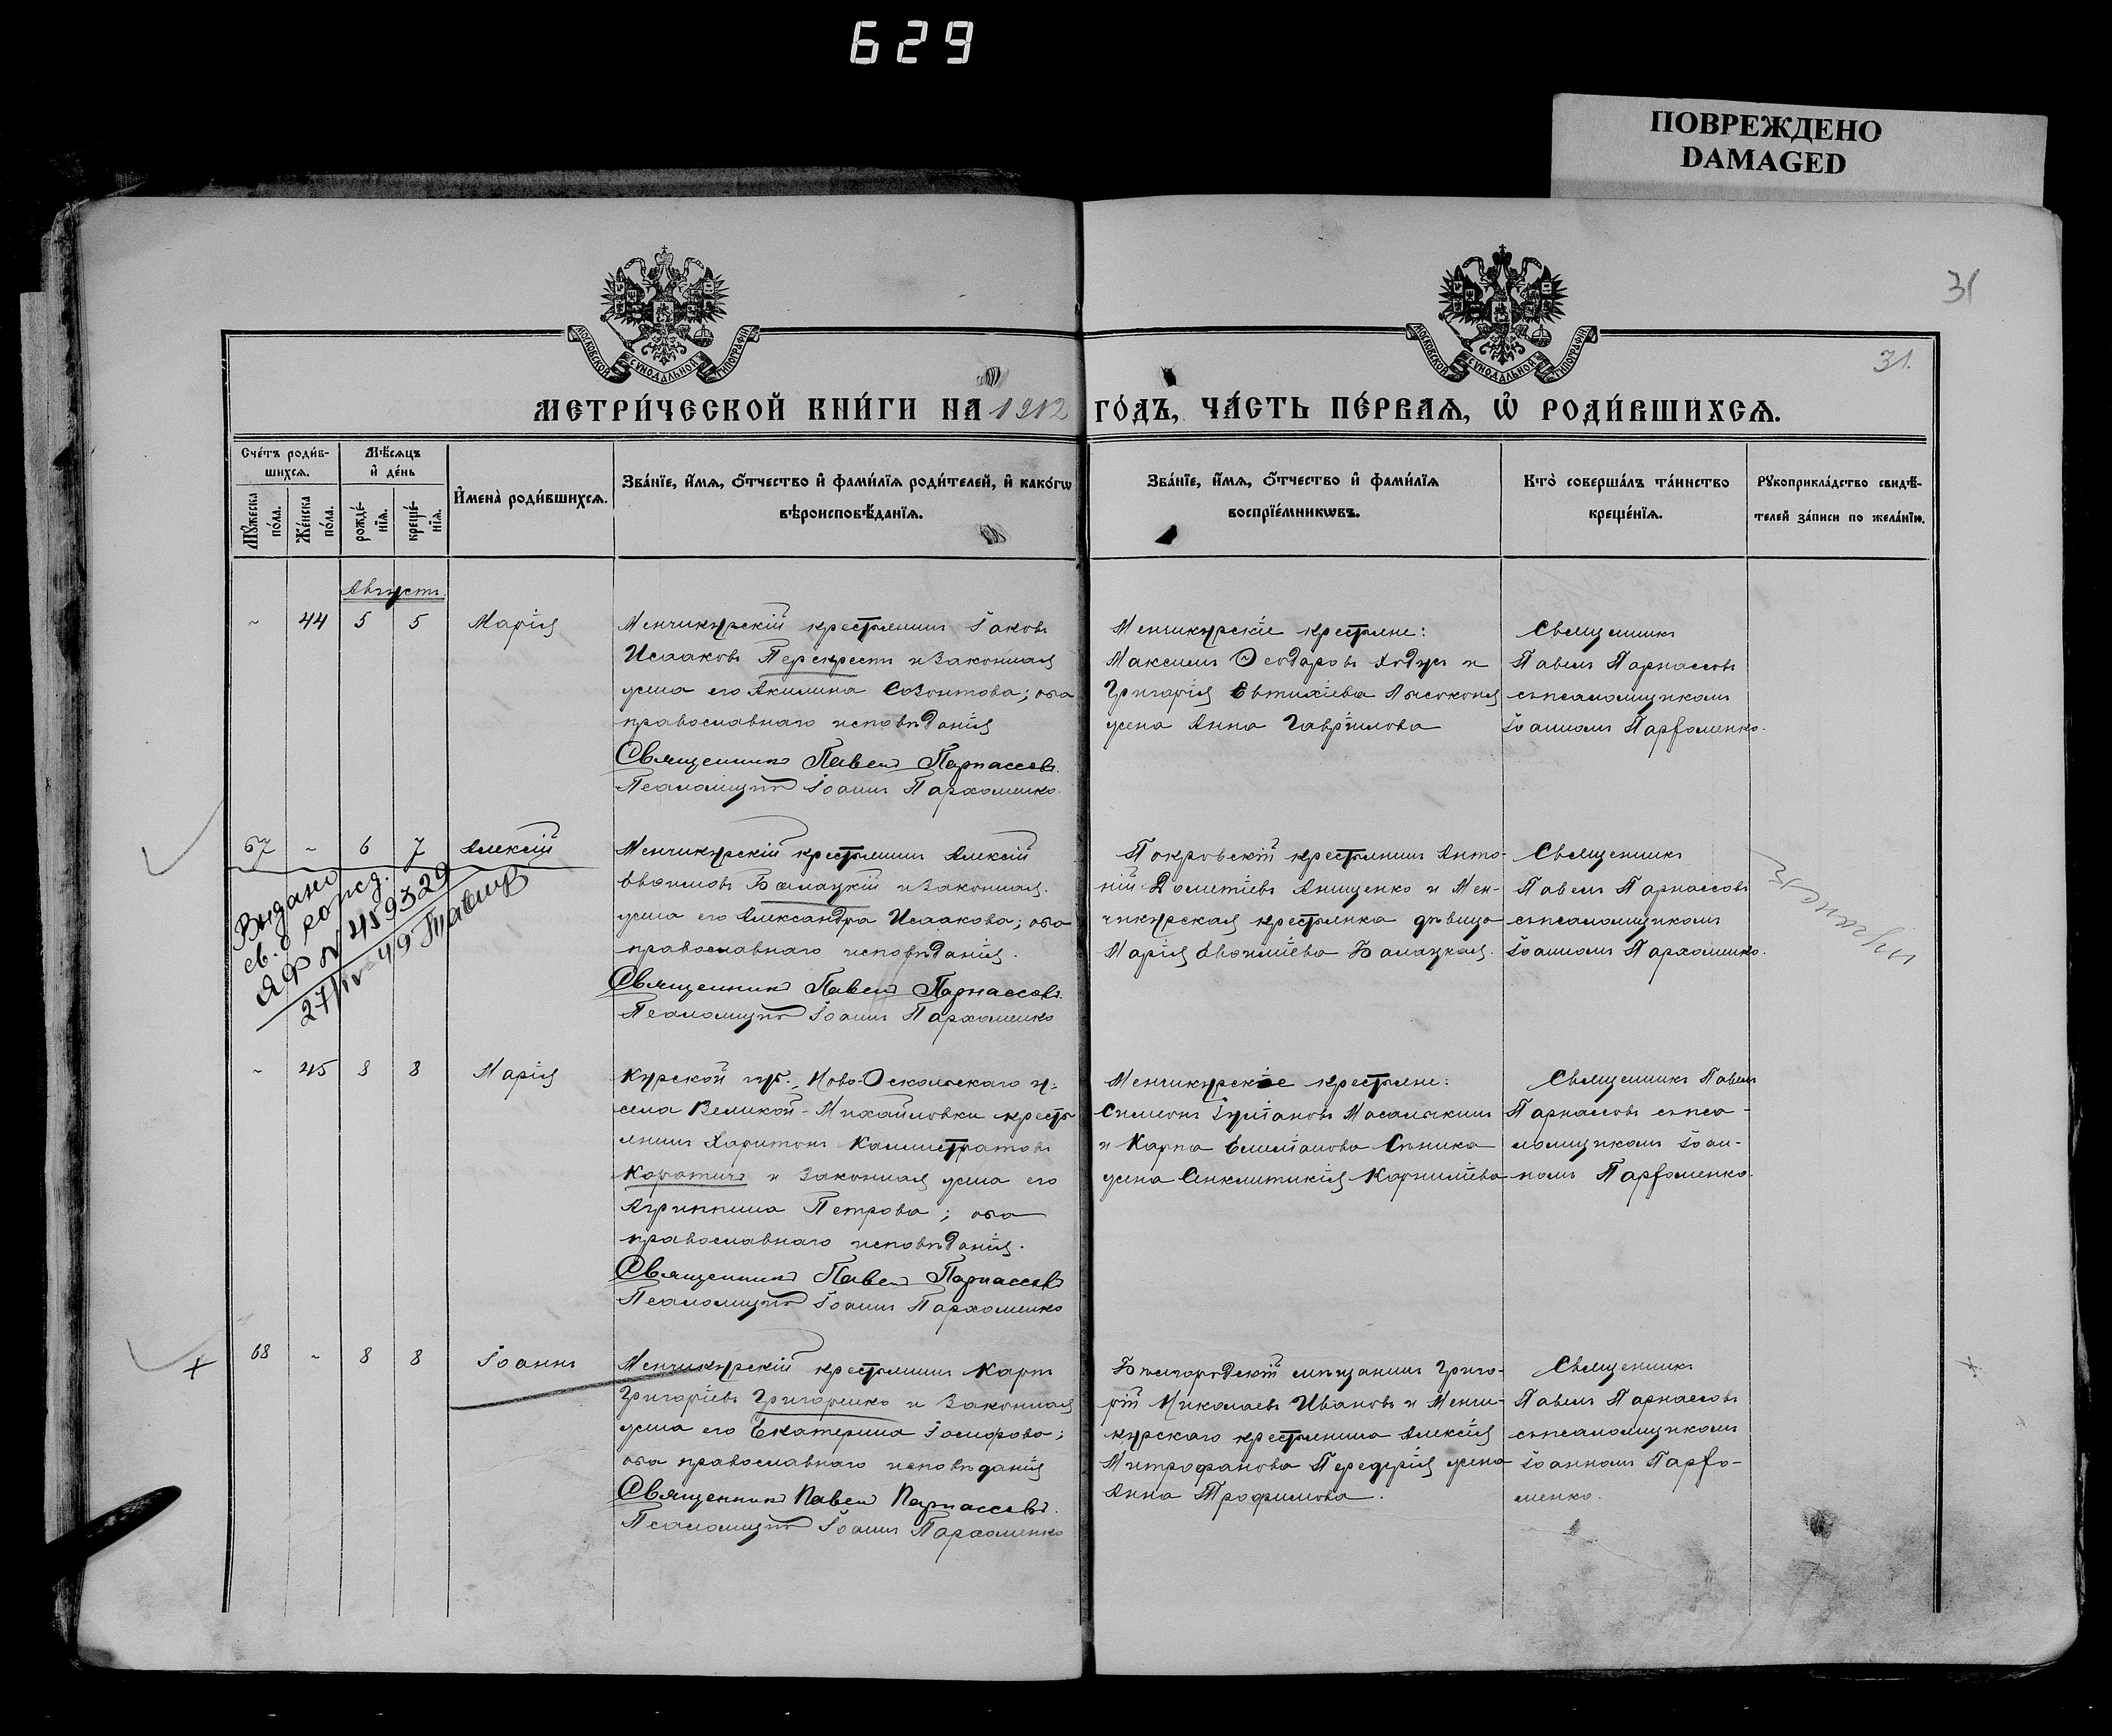 629
ПОВРЕЖДЕНО
DAMAGED
31
31.
МОСКОВСКОЙ СѴНОДАЛЬНОЙ ТИПОГРАФІИ
МОСКОВСКОЙ СѴНОДАЛЬНОЙ ТИПОГРАФІИ
МЕТРИ́ЧЕСКОЙ КНИ́ГИ НА 1912 ГО́ДЪ, ЧА́СТЬ ПЕ́РВАѦ, Ѡ҆ РОДИ́ВШИХСѦ.
Сче́тъ роди́в-
шихсѧ.
Мꙋ́жеска по́ла.
Же́нска по́ла.
Мѣ́сѧцъ
и҆ де́нь
рожде́-
нїѧ.
креще́-
нїѧ.
И҆мена̀ роди́вшихсѧ.
Зва́нїе, и҆́мѧ, ѻ҆́тчество и҆ фами́лїѧ роди́телей, и҆ како́гѡ
вѣроисповѣ́данїѧ.
Зва́нїе, и҆́мѧ, ѻ҆́тчество и҆ фами́лїѧ
воспрїе́мникѡвъ.
Кто̀ соверша́лъ та́инство
креще́нїѧ.
Рꙋкоприкла́дство свидѣ́-
телей за́писи по жела́нїю.
Августъ.
~ 44 5 5 Марія
Менчикурскій крестьянинъ Іаковъ
Исааковъ Перекрестъ и законная
жена его Акилина Созонтова; оба
православнаго исповѣданія
Священникъ Павелъ Парнассовъ.
Псаломщикъ Іоаннъ Пархоменко.
Менчикурскіе крестьяне:
Максимъ Ѳеодоровъ Ходусъ и
Григорія Евтихіева Лысоконя
жена Анна Гавріилова
Священникъ
Павелъ Парнассовъ
съ псаломщикомъ
Іоанномъ Парѳоменко.
67 ~ 6 7 Алексій
Выдано
св. о рожд.
ЯФ № 459329
27/IV-49
Менчикурскій крестьянинъ Алексій
Евѳимовъ Балацкій и законная
жена его Александра Исаакова; оба
православнаго исповѣданія.
Священникъ Павелъ Парнассовъ.
Псаломщикъ Іоаннъ Пархоменко
Покровскій крестьянинъ Анто-
ній Дометіевъ Анищенко и Мен-
чикурская крестьянка дѣвица
Марія Евѳиміева Балацкая.
Священникъ
Павелъ Парнассовъ
съ псаломщикомъ
Іоанномъ Пархоменко.
~ 45 8 8 Марія
Курской губ., Ново-Оскольскаго у.
села Великой-Михайловки кресть-
янинъ Харитонъ Каллистратовъ
Каратичъ и законная жена его
Агриппина Петрова; оба
православнаго исповѣданія.
Священникъ Павелъ Парнассовъ
Псаломщикъ Іоаннъ Пархоменко
Менчикурскіе крестьяне:
Симеонъ Іуліановъ Масалыкинъ
и Карпа Емиліанова Сѣника
жена Сенклитикія Корниліева
Священникъ Павелъ
Парнассовъ съ пса-
ломщикомъ Іоан-
номъ Парѳоменко.
68 ~ 8 8 Іоаннъ
Менчикурскій крестьянинъ Карпъ
Григоріевъ Григоренко и законная
жена его Екатерина Іосифова;
оба православнаго исповѣданія
Священникъ Павелъ Парнассовъ.
Псаломщикъ Іоаннъ Пархоменко
Бѣлгородскій мѣщанинъ Григо-
рій Николаевъ Ивановъ и Менчи-
курскаго крестьянина Алексія
Митрофанова Передерія жена
Анна Трофимова.
Священникъ
Павелъ Парнассовъ
съ псаломщикомъ
Іоанномъ Парѳо-
менко.